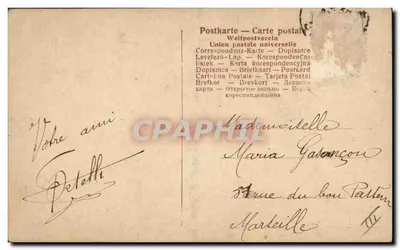 Postkarte — Carte postale
Weltpostverein
Union postale universelle
Correspondenz-Karte — Dopisnice
Levelező-Lap. — Korrespondenčni
listek — Karta korespondencyjna
Dopisnica — Briefkaart — Postcard
Cartolina Postale — Tarjeta Postal
Brefkort — Brevkort —
карта — Открытое письмо —
CPAPHIL.COM
Votre ami
Mademoiselle
Maria
rue du bon Pasteur
Marseille
III